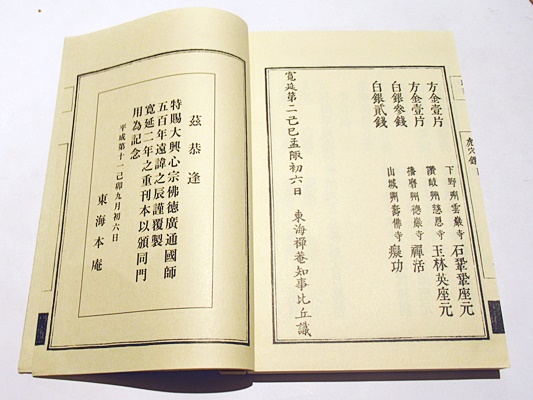 方金壹片 下野州雲巖寺石鞏鞏座元
方金壹片 讚岐州慈恩寺玉林英座元
白銀參錢 播磨州德巖寺禪活
白銀貳錢 山城州壽佛寺癡功
寬延第二己巳孟陬初六日 東海禪菴知事比丘識
虎穴錄
茲恭逢
特賜大興心宗佛德廣通國師
五百年遠諱之辰謹覆製
寬延二年之重刊本以頒同門
用為記念
平成第十一己卯九月初六日
東海本庵